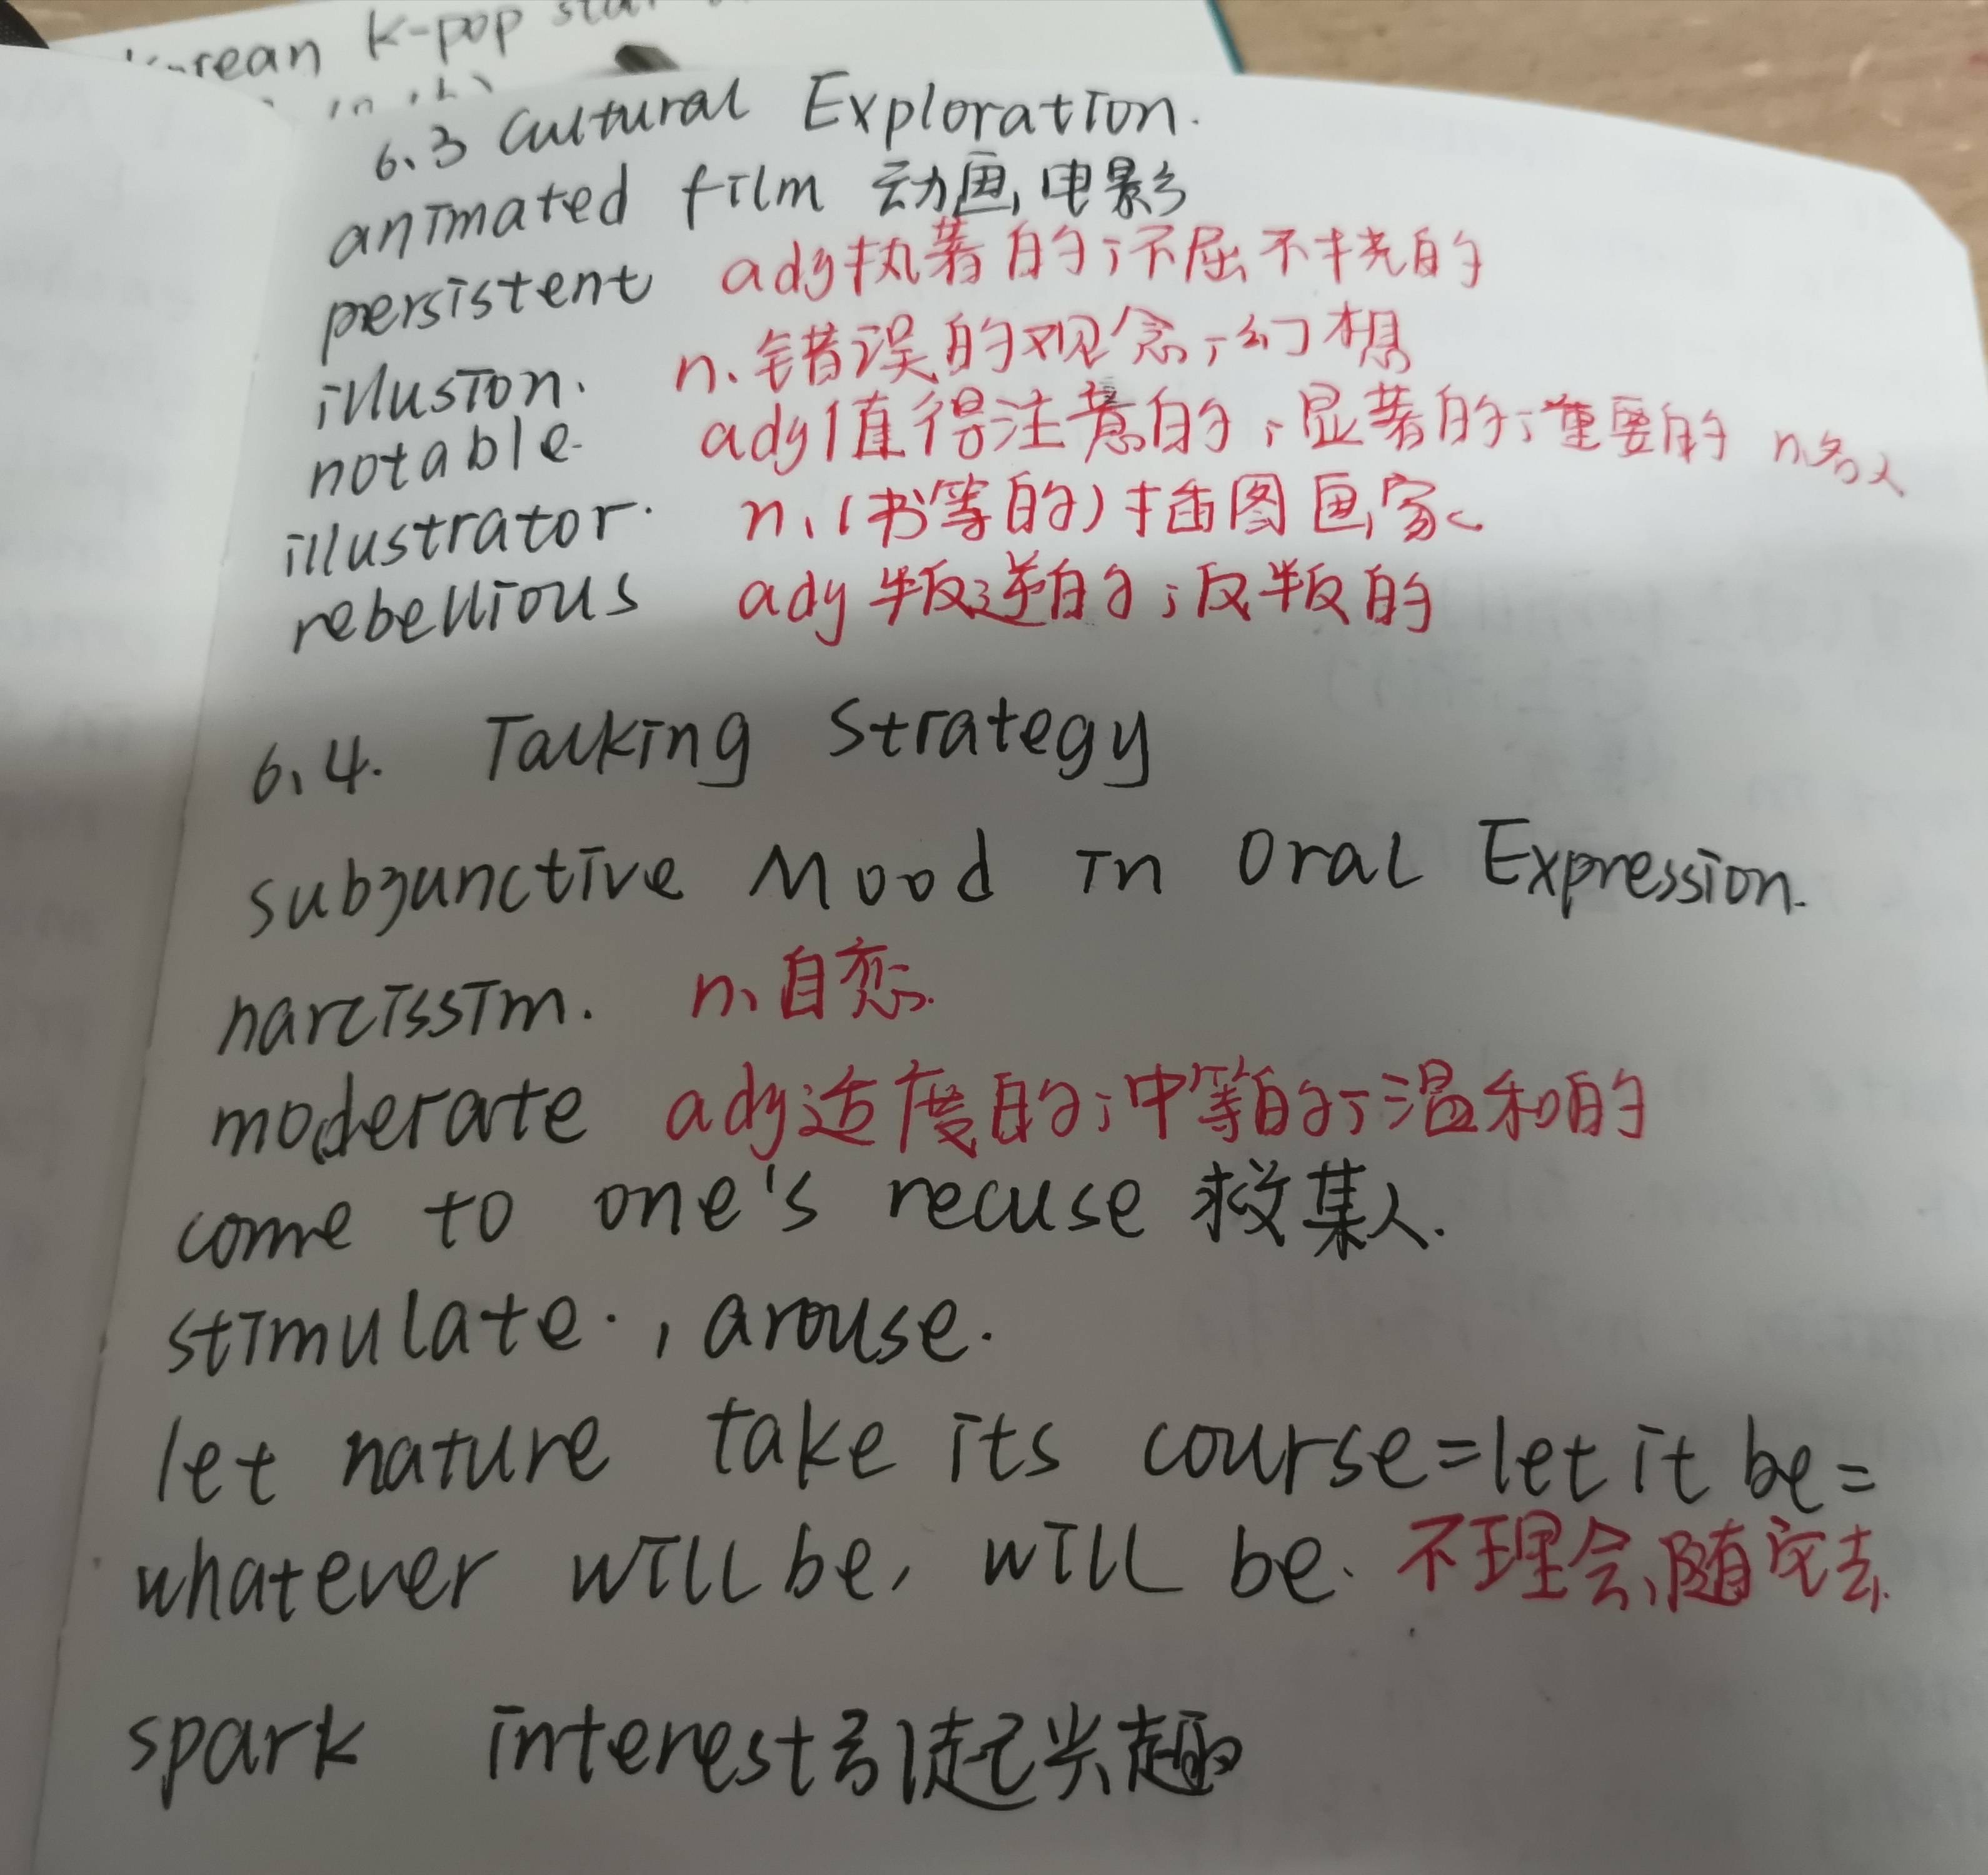 K-pop
6.3 Cultural Exploration.
animated film 动画电影
persistent adj执著的;不屈不挠的
illusion. n.错误的观念;幻想
notable. adj值得注意的;显著的;重要的 n.名人
illustrator. n.(书等的)插图画家
rebellious adj叛逆的;反叛的
6.4. Talking Strategy
subjunctive Mood in Oral Expression.
narcissim. n.自恋.
moderate adj适度的;中等的;温和的
come to one's recuse 救某人.
stimulate., arouse.
let nature take its course=let it be=
whatever will be, will be. 不理会,随它去.
spark interest引起兴趣